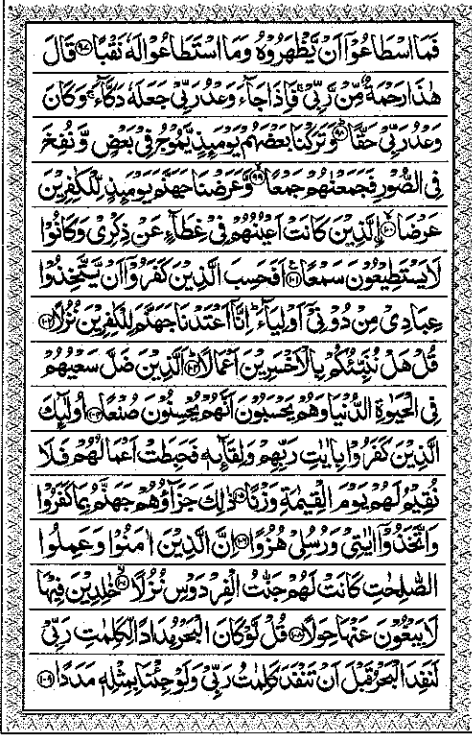 فَمَا اسْطَاعُوْۤا اَنْ يَّظْهَرُوْهُ وَمَا اسْتَطَاعُوْا لَهٗ نَقْبًا ﴿۹۷﴾ قَالَ
هٰذَا رَحْمَةٌ مِّنْ رَّبِّيْ ۚ فَاِذَا جَآءَ وَعْدُ رَبِّيْ جَعَلَهٗ دَكَّآءَ ۚ وَكَانَ
وَعْدُ رَبِّيْ حَقًّا ﴿۹۸﴾ وَتَرَكْنَا بَعْضَهُمْ يَوْمَئِذٍ يَّمُوْجُ فِيْ بَعْضٍ وَّنُفِخَ
فِي الصُّوْرِ فَجَمَعْنٰهُمْ جَمْعًا ﴿۹۹﴾ وَّعَرَضْنَا جَهَنَّمَ يَوْمَئِذٍ لِّلْكٰفِرِيْنَ
عَرْضَا ﴿۱۰۰﴾ الَّذِيْنَ كَانَتْ اَعْيُنُهُمْ فِيْ غِطَآءٍ عَنْ ذِكْرِيْ وَكَانُوْا
لَا يَسْتَطِيْعُوْنَ سَمْعًا ﴿۱۰۱﴾ اَفَحَسِبَ الَّذِيْنَ كَفَرُوْۤا اَنْ يَّتَّخِذُوْا
عِبَادِيْ مِنْ دُوْنِيْۤ اَوْلِيَآءَ ؕ اِنَّاۤ اَعْتَدْنَا جَهَنَّمَ لِلْكٰفِرِيْنَ نُزُلًا ﴿۱۰۲﴾
قُلْ هَلْ نُنَبِّئُكُمْ بِالْاَخْسَرِيْنَ اَعْمَالًا ﴿۱۰۳﴾ اَلَّذِيْنَ ضَلَّ سَعْيُهُمْ
فِي الْحَيٰوةِ الدُّنْيَا وَهُمْ يَحْسَبُوْنَ اَنَّهُمْ يُحْسِنُوْنَ صُنْعًا ﴿۱۰۴﴾ اُولٰٓئِكَ
الَّذِيْنَ كَفَرُوْا بِاٰيٰتِ رَبِّهِمْ وَلِقَآئِهٖ فَحَبِطَتْ اَعْمَالُهُمْ فَلَا
نُقِيْمُ لَهُمْ يَوْمَ الْقِيٰمَةِ وَزْنًا ﴿۱۰۵﴾ ذٰلِكَ جَزَآؤُهُمْ جَهَنَّمُ بِمَا كَفَرُوْا
وَاتَّخَذُوْۤا اٰيٰتِيْ وَرُسُلِيْ هُزُوًا ﴿۱۰۶﴾ اِنَّ الَّذِيْنَ اٰمَنُوْا وَعَمِلُوا
الصّٰلِحٰتِ كَانَتْ لَهُمْ جَنّٰتُ الْفِرْدَوْسِ نُزُلًا ﴿۱۰۷﴾ خٰلِدِيْنَ فِيْهَا
لَا يَبْغُوْنَ عَنْهَا حِوَلًا ﴿۱۰۸﴾ قُلْ لَّوْ كَانَ الْبَحْرُ مِدَادًا لِّكَلِمٰتِ رَبِّيْ
لَنَفِدَ الْبَحْرُ قَبْلَ اَنْ تَنْفَدَ كَلِمٰتُ رَبِّيْ وَلَوْ جِئْنَا بِمِثْلِهٖ مَدَدًا ﴿۱۰۹﴾